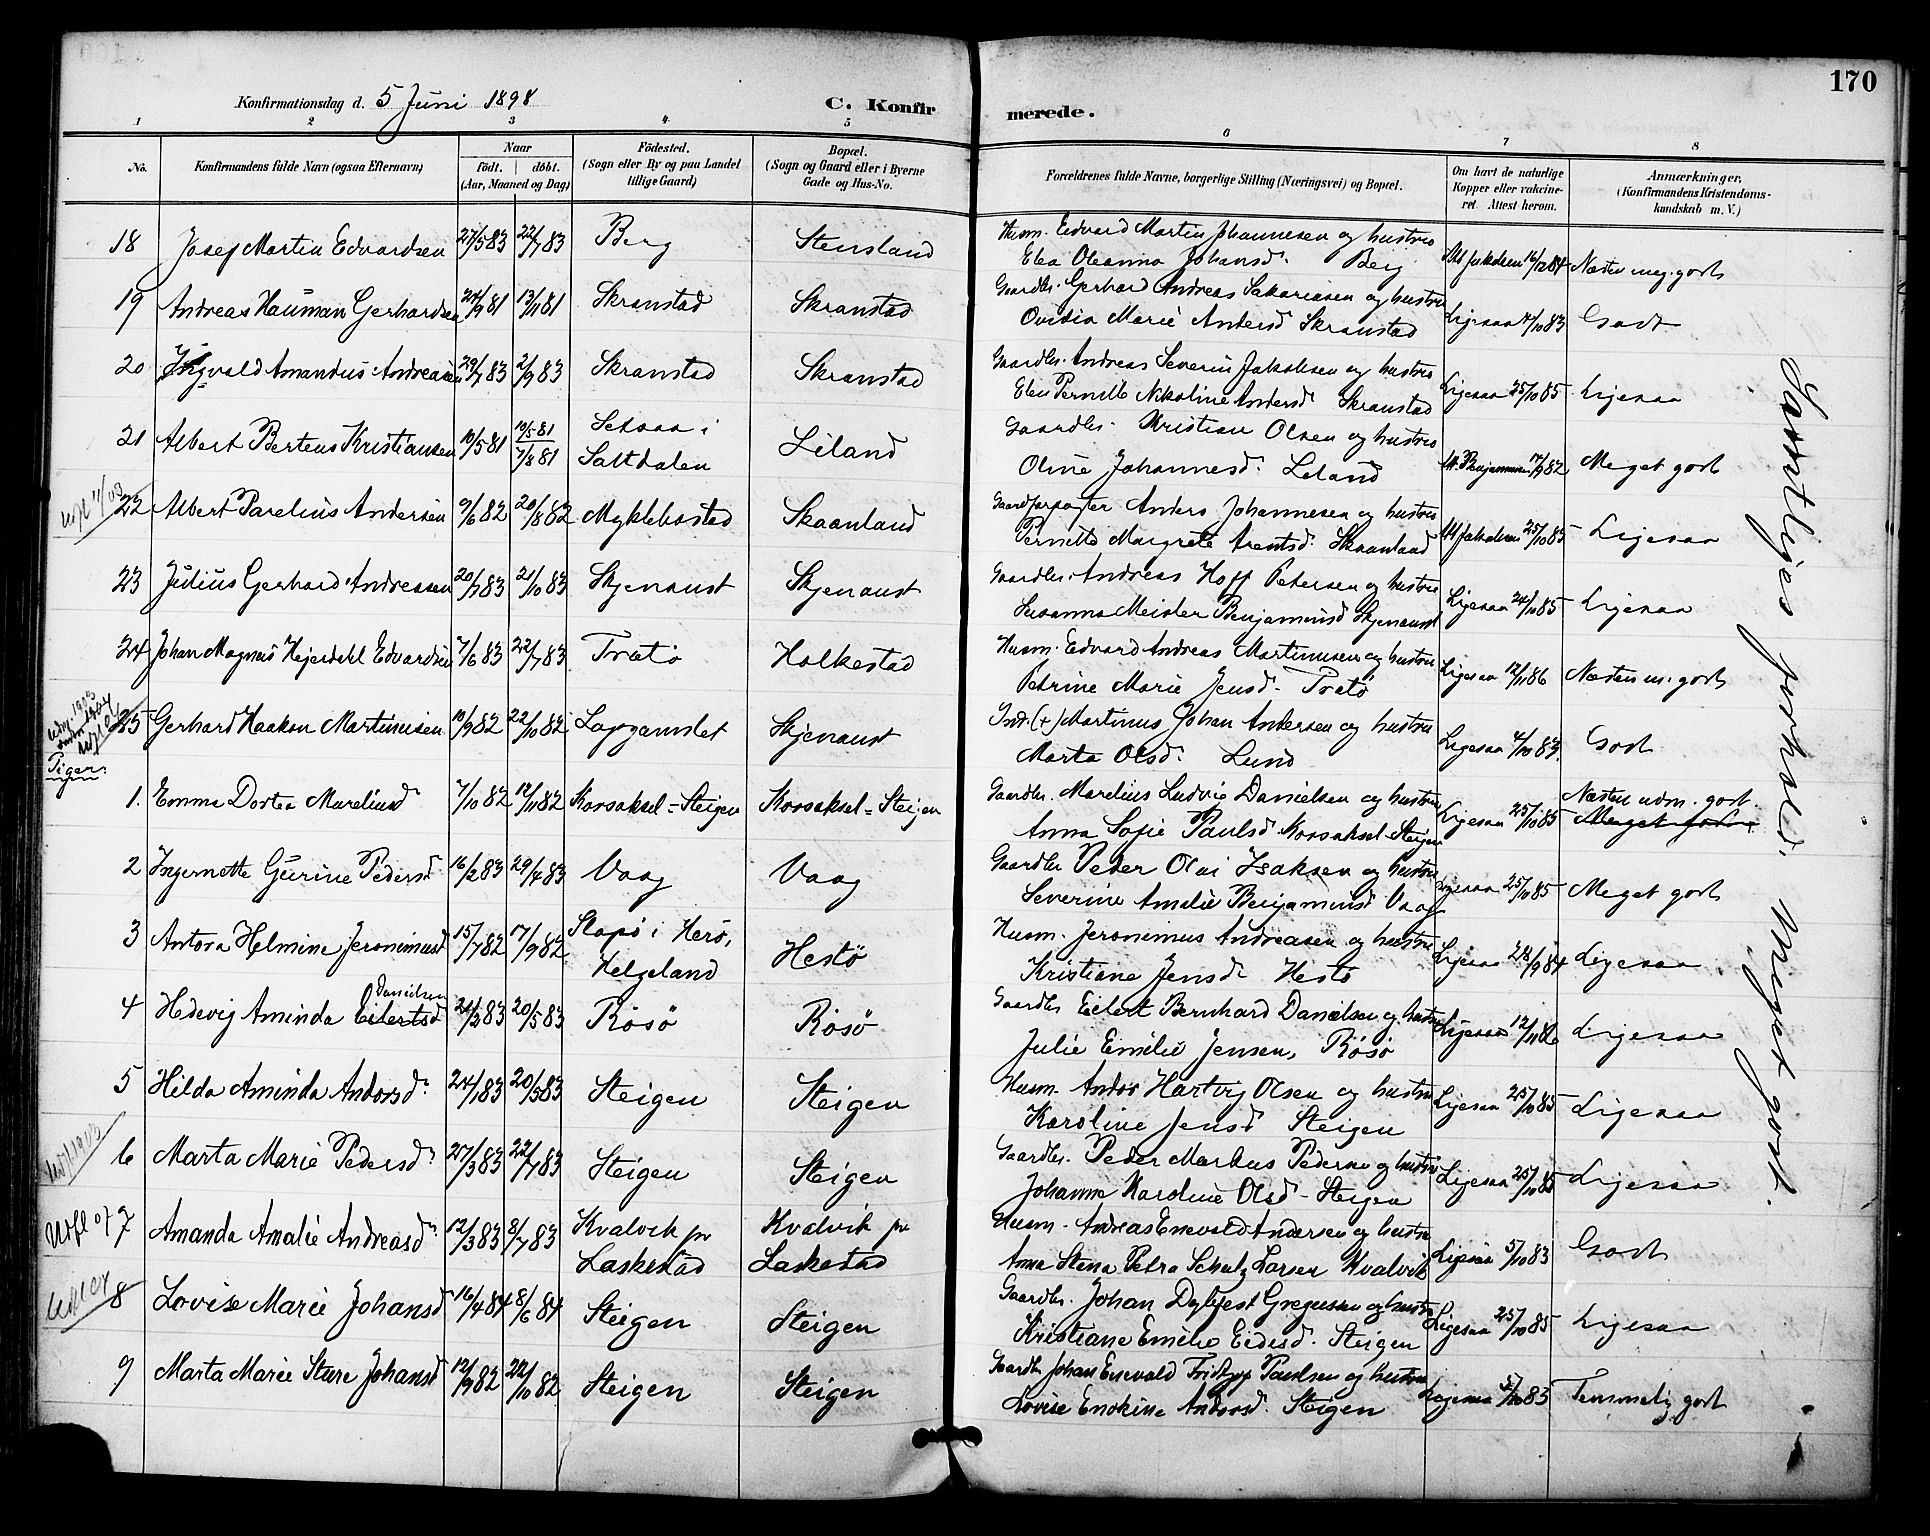 170
Konfirmationsdag d. 5 Juni 1898
C. Konfirmerede.
1 2 3 4 5 6 7 8
No.
Konfirmandens fulde Navn (ogsaa Efternavn)
Naar
født. døbt.
(Aar, Maaned og Dag)
Fødested.
(Sogn eller By og paa Landet
tillige Gaard)
Bopæl.
(Sogn og Gaard eller i Byerne
Gade og Hus-No.
Forældrenes fulde Navne, borgerlige Stilling (Næringsvei) og Bopæl.
Om havt de naturlige
Kopper eller vakcine-
ret. Attest herom.
Anmærkninger,
(Konfirmandens Kristendoms-
kundskab m. V.)
18 Josef Martin Edvardsen 27/5 83 22/7 83 Berg Stensland Husm. Edvard Martin Johannesen og hustru
Elea Oleanna Johansd. Berg 16/12 84 Næsten meg. godt
19 Andreas Hauman Gerhardsen 24/9 81 13/11 81 Skranstad Skranstad Gaardbr. Gerhard Andreas Sakariasen og hustru
Ovidia Marie Andersd Skranstad Ligesaa 4/10 83 Godt
20 Ingvald Amandus Andreasen 29/7 83 2/9 83 Skranstad Skranstad Gaardbr. Andreas Severin Jakobsen og hustru
Elen Pernille Nikoline Andersd Skranstad Ligesaa 25/10 85 Ligesaa
21 Albert Bertens Kristiansen 10/5 81 10/5 81 7/8 81 Setsaa i
Saltdalen Leland Gaardbr. Kristian Olsen og hustru
Oline Johannesd. Leland M. Benjaminsen 17/9 82 Meget godt
22 Albert Parelius Andersen 9/6 82 20/8 82 Myklebostad Skaanland Gaardforpagter Anders Johannesen og hustru
Pernille Margrete Arentsd. Skaanland 25/10 85 Ligesaa
23 Julius Gerhard Andreasen 20/7 83 21/10 83 Skjenaust Skjenaust Gaardbr. Andreas Hoff Petersen og hustru
Susanna Meisler Benjaminsd Skjenaust Ligesaa 24/10 85 Ligesaa
24 Johan Magnus Hejerdahl Edvardsen 7/6 83 22/7 83 Tratø Holkestad Husm. Edvard Andreas Martinusen og hustru
Petrine Marie Jensd. Tratø Ligesaa 12/11 86 Næsten m. godt
25 Gerhard Haakon Martinusen 10/9 82 22/10 82 Lappgamslet Skjenaust Ind. (+) Martinus Johan Andersen og hustru
Marta Olsd. Lund Ligesaa 4/10 83 Godt
Piger:
1. Emma Dortea Mareliusd 7/10 82 12/11 82 Korsaksel - Steigen Korsaksel - Steigen Gaardbr. Marelius Ludvig Danielsen og hustru
Anna Sofie Paulsd Korsaksel Steigen Ligesaa 25/10 85 Næsten udm. godt.
Meget godt
2 Ingernette Gurine Pedersd 16/2 83 29/4 83 Vaag Vaag Gaardbr Peder Olai Isaksen og hustru
Severine Amalie Benjaminsd Vaag Ligesaa 25/10 85 Meget godt
3 Antora Helmine Jeronimusd 15/7 82 17/9 82 Slapø i Herø,
Helgeland Hestø Husm. Jeronimus Andreasen og hustru
Kristiane Jensd. Hestø Ligesaa 28/9 84 Ligesaa
4 Hedevig Aminda Eilertsd Danielsen 21/3 83 20/5 83 Røsø Røsø Gaardbr Eilert Bernhard Danielsen og hustru
Julie Emilie Jensen, Røsø Ligesaa 12/11 86 Ligesaa
5 Hilda Aminda Andorsd. 24/1 83 20/5 83 Steigen Steigen Husm. Andor Hartvig Olsen og hustru
Karoline Jensd Steigen Ligesaa 25/10 85 Ligesaa
6 Marta Marie Pedersd. 27/3 83 22/7 83 Steigen Steigen Gaardbr. Peder Markus Pedersen og hustru
Johanna Karoline Olsd - Steigen Ligesaa 25/10 85 Ligesaa
7 Amanda Amalie Andreasd. 12/3 83 8/7 83 Kvalvik pr
Laskestad Kvalvik pr
Laskestad Husm. Andreas Enevald Andersen og hustru
Anna Stena Petra Schulz Larsen Kvalvik Ligesaa 5/10 83 Godt
8 Lovise Marie Johansd 16/4 84 8/6 84 Steigen Steigen Gaardbr. Johan Dyblfest Gregusen og hustru
Kristiane Emelie Eidesd. Steigen Ligesaa 25/10 85 Ligesaa
9 Marta Marie Sture Johansd 12/9 82 22/10 82 Steigen Steigen Gaardbr Johan Enevald Paulsen og hustru
Lovise Enokine Andorsd. Steigen Ligesaa 5/10 83 Temmelig godt
Samtliges forhold: Meget godt.